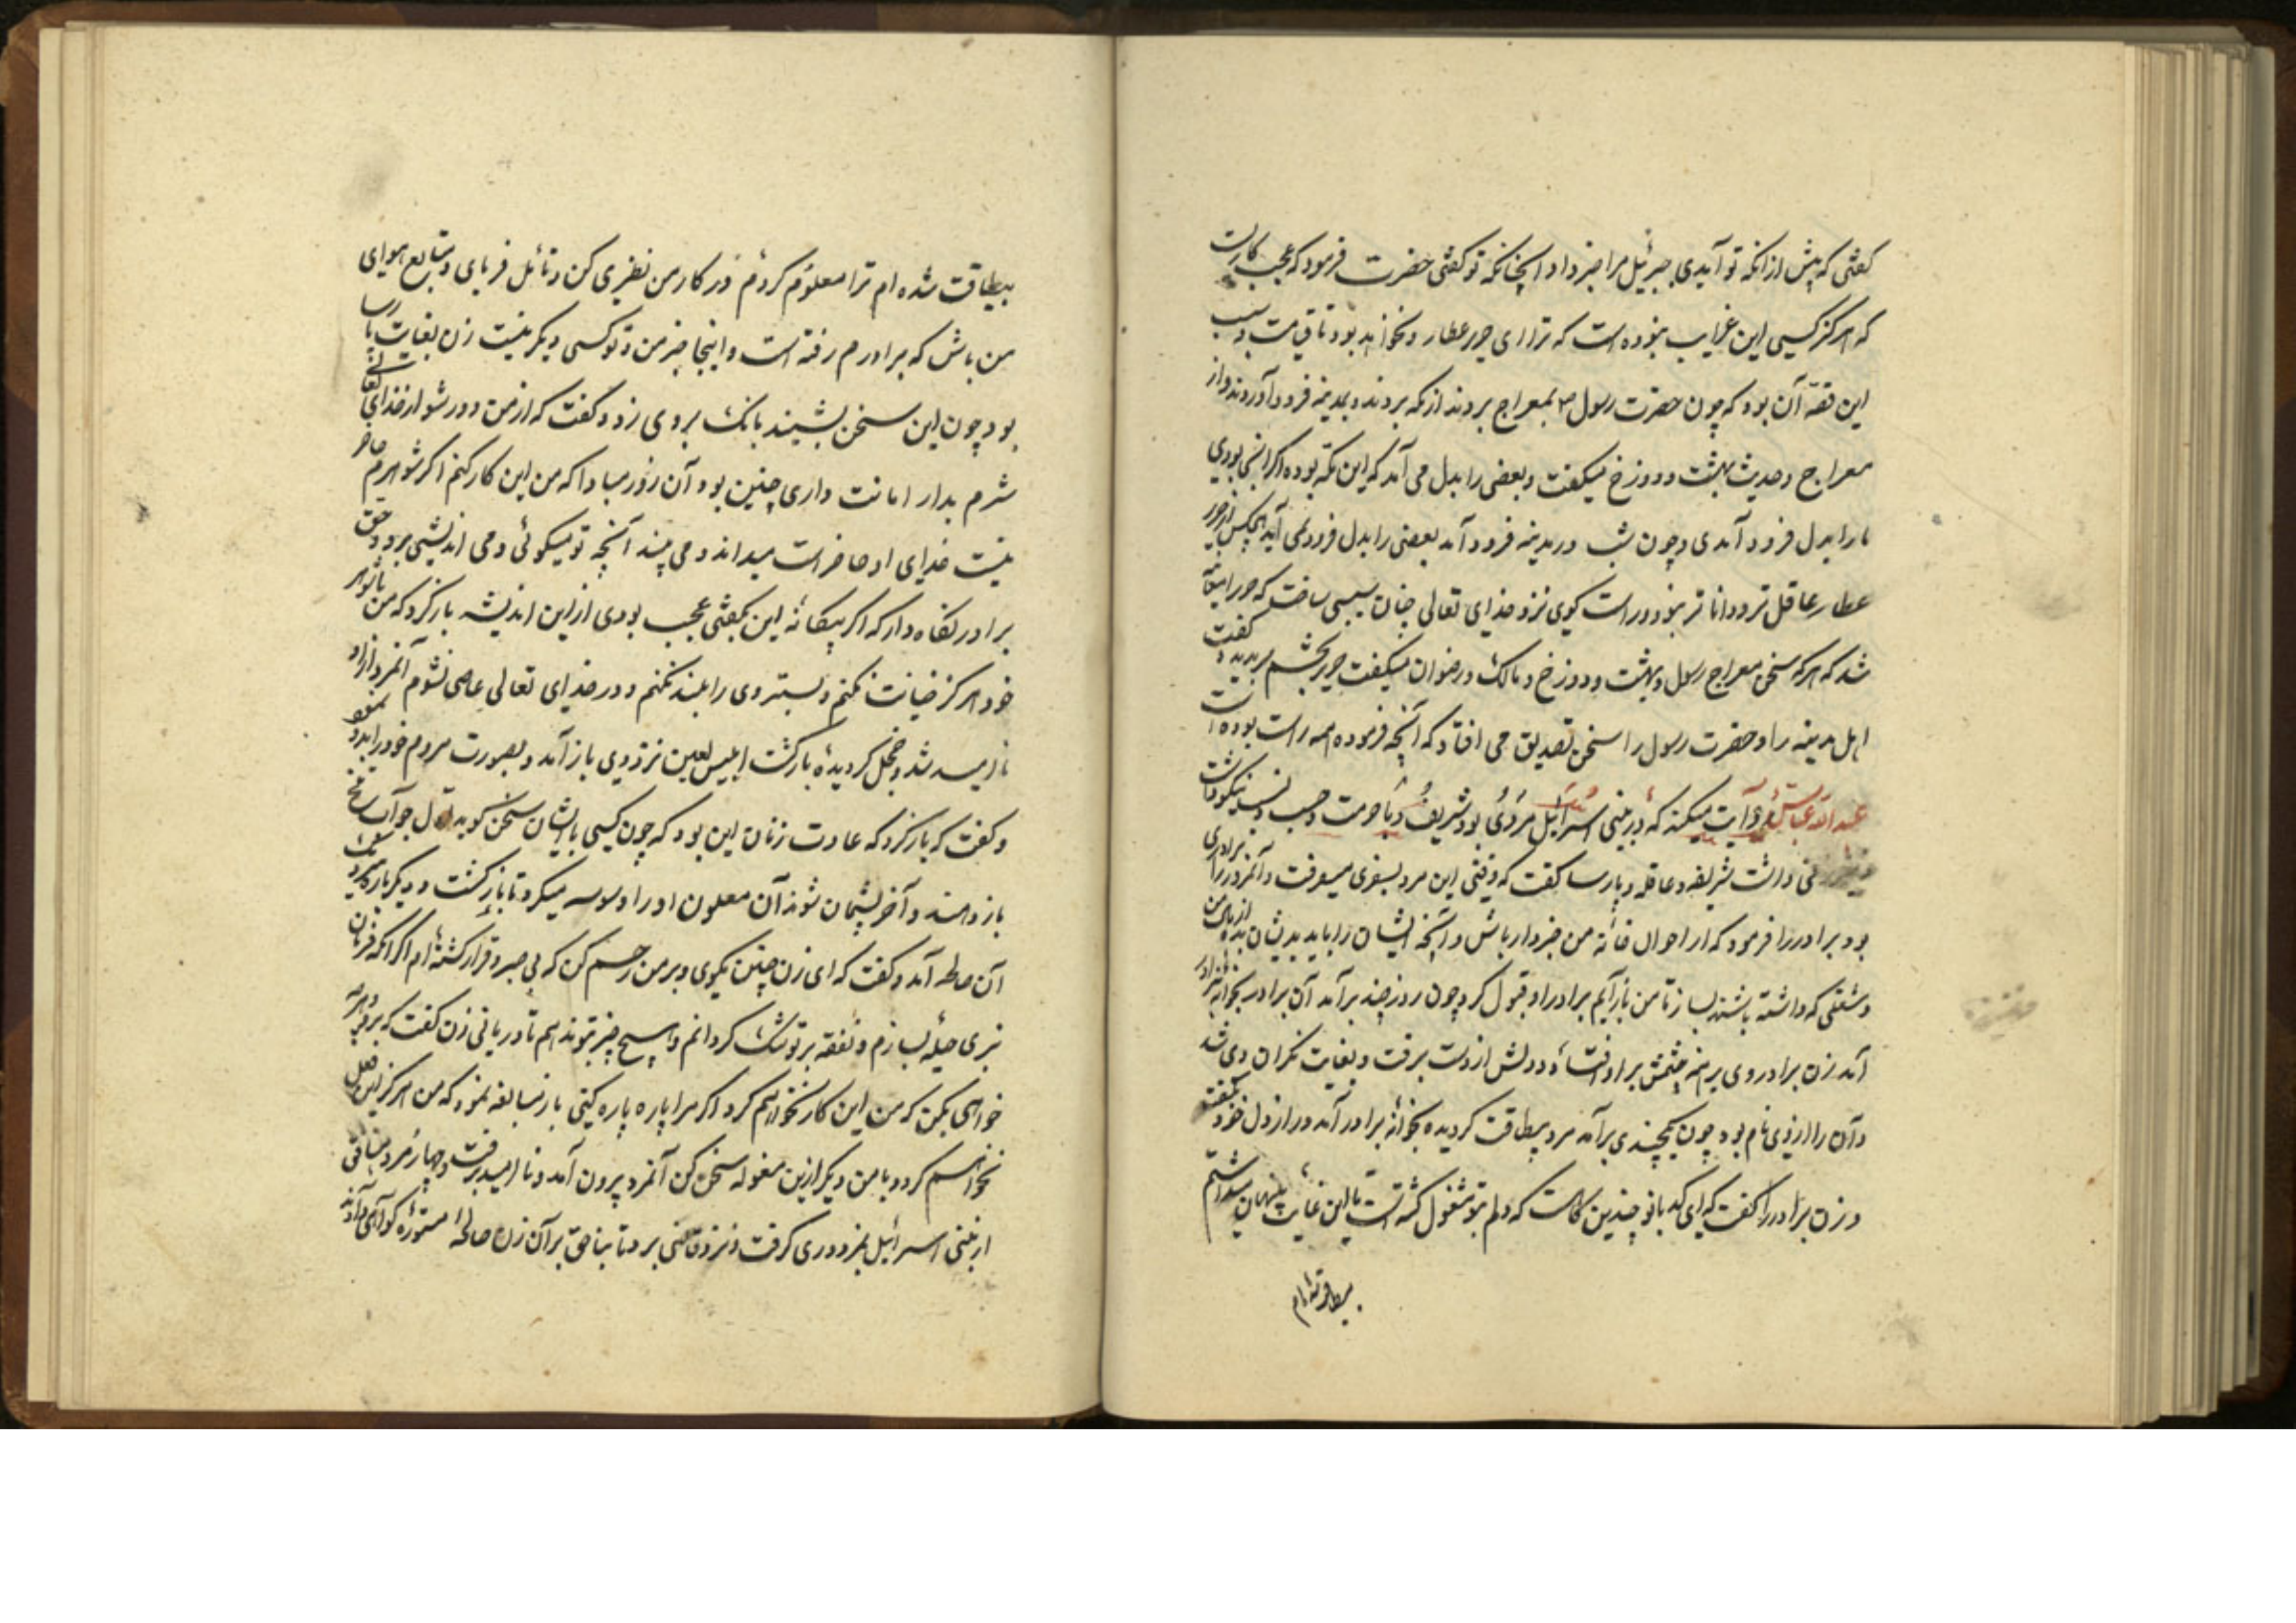 گفتی که پیش از آنکه تو آیدی جبرئیل مرا خبر داد آنچنانکه تو گفتی حضرت فرمود که عجب کاریست
که هرگز کسی این غرایب نبوده است که ترا ای حور عطار و نخواهد بود تا قیامت و سبب
این قصّه آن بود که چون حضرت رسول م بمعراج بردند از مکه بردند و بمدینه فرود آوردند و از
معراج و حدیث بهشت و دوزخ میگفت و بعضی را بدل می آمد که این مکه بوده اگر اینجا بودی
ما را بدل فرود آمدی و چون شب در مدینه فرود آمد بعضی را بدل فرود نمی آید هیچکس از حور
عطار عاقل تر و دانا تر نبود و راست گوی نزد خدای تعالی چنان سببی ساخت که حور
شد که هر که سخن معراج رسول و بهشت و دوزخ و مالک و رضوان میگفت حور بچشم بدید و گفت
اهل مدینه را و حضرت رسول را سخن تصدیق می افتاد که آنچه فرموده همه راست بوده است
عبد الله عباس روایت میکند که در بنی اسرائیل مردی بود شریف و با حرمت و حسب و نسب نیکو داشت
زنی داشت شریفه و عاقله و پارسا گفت که وقتی این مرد بسفری میرفت و آنمرد را برادری
بود برادر را فرمود که از احوال خانه من خبردار باش و آنچه ایشان را باید بدیشان بده از برای من
و شغلی که داشته باشند بساز تا من باز آیم برادر او قبول کرد چون روز چند برآمد آن برادر بخانه برادر
آمد زن برادر روی برهنه چشمش بر او افتاد و دلش از دست برفت و بغایت نگران وی شد
و آن را ارزوی نام بود چون یکچندی برآمد مرد بیطاقت گردیده بخانه برادر آمد و راز دل خود بگفت
و زن برادر را گفت که ای کدبانو چندین گاهست که دلم بتو مشغول گشته است تا این غایت پنهان میداشتم
بیطاقت شده ام
بیطاقت شده ام ترا معلوم کردم در کار من نظری کن و تأمل فرمای و متابع هوای
من باش که برادرم رفته است و اینجا جز من و تو کسی دیگر نیست زن بغایت پارسا
بود چون این سخن بشنید بانگ بر وی زد و گفت که از من دور شو از خدای تعالی
شرم بدار امانت داری چنین بود آن روز مبادا که من این کار کنم اگر شوهرم حاضر
نیست خدای او حاضر است میداند و می بیند آنچه تو میگوئی و می اندیشی برو و حق
برادر نگاه دار که اگر بیگانه این بگفتی عجب بودی از این اندیشه باز گرد که من با شوهر
خود هرگز خیانت نکنم و بستر وی را بلند نکنم و در خدای تعالی عاصی نشوم آنمرد از او
نا امید شد و خجل گردیده بازگشت ابلیس لعین نزد وی باز آمد و بصورت مردم خود را بدو نمود
و گفت که باز گرد که عادت زنان این بود که چون کسی با ایشان سخن گوید اول جواب سخت
باز دهند و آخر پشیمان شوند آن معلون او را وسوسه میکرد تا بازگشت و دیگر باره
آن صالحه آمد و گفت که ای زن چنین مگوی و بر من رحم کن که بی صبر و قرار گشته ام اگر آنکه فرمان
نبری حیله بسازم و نفقه بر تو تنگ گردانم و هیچ چیز بتو ندهم تا در یابی زن گفت که برو هر چه
خواهی بکن که من این کار نخواهم کرد اگر مرا پاره پاره کنی باز مبالغه نمود که من هرگز این فعل
نخواهم کرد و با من دیگر ازین مقوله سخن مکن آنمرد بیرون آمد و نا امید برفت و چهار مرد منافق
از بنی اسرائیل بمزدوری گرفت و نزد قاضی برد تا بناحق بر آن زن صالحهٔ مستوره گواهی دادند